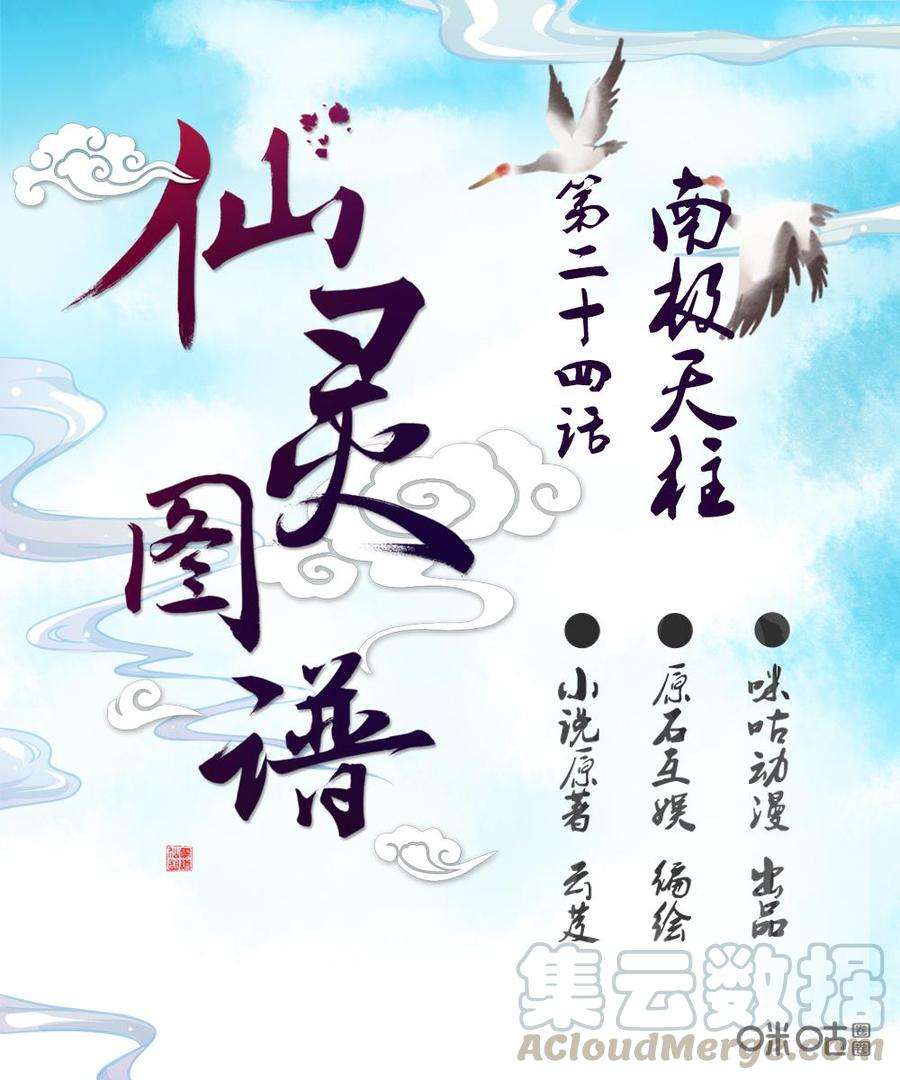 仙灵图谱
第二十四话
南极天柱
小说原著 云芨
原石互娱 编绘
咪咕动漫 出品
集云数据
ACloudMerge.com
咪咕圈圈